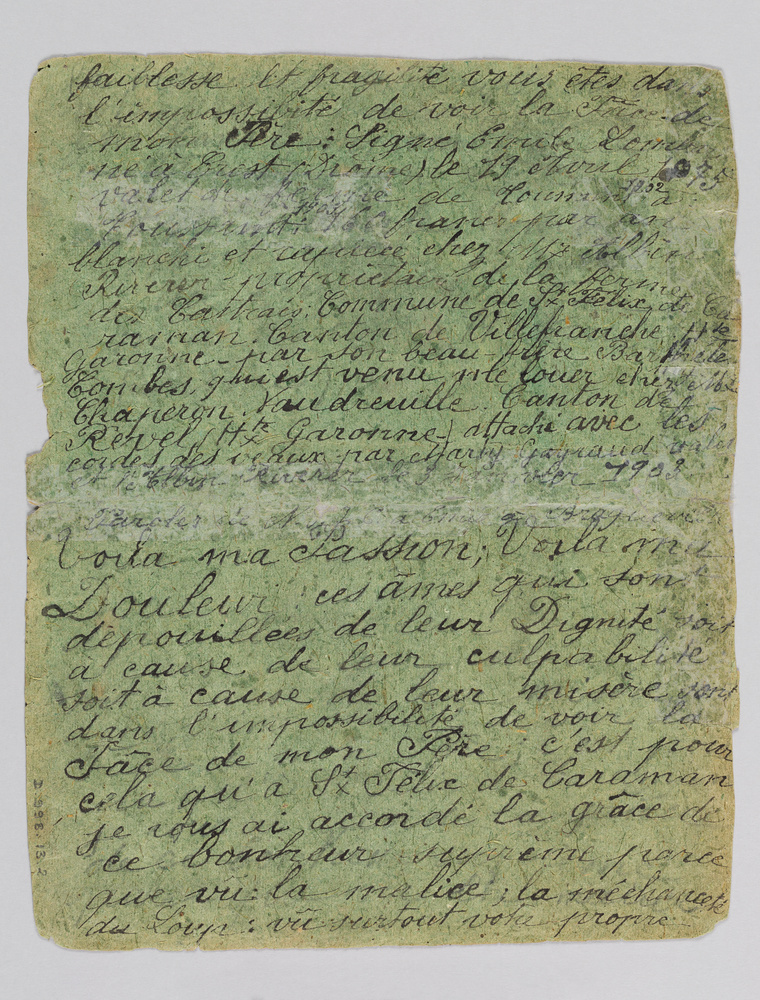 faiblesse et fragilité vous êtes dans
l'impossibité de voir la Face de
mon Père : Signé, Emile Lom
né à Crest (Drome) le 19 Avril 1875
valet de de
1902
1904 francs par an
blanchi et chez Mr Albin
Rivirer propriétaire de la ferme
des Castrais. Commune de St Félix de Ca
raman. Canton de Villefranche Hte
Garonne - par son beau-frère Barthélé
Combes, qui est venu me louer chez Mr
Chaperon. Vaudreuille. Canton de
Revel (Hte Garonne) attaché avec les
cordes des veaux par Charly Gayraud valet
et Albin Rivirer le 3 1903
Paroles de
Voila ma Passion; Voila ma
Douleur ces âmes qui sont
dépouillées de leur Dignité soit
a cause de leur culpabilité
soit à cause de leur misère sont
dans l'impossibilité de voir la
Fâce de mon Père : c'est pour
cela qu'a St Félix de Caraman
je vous ai accordé la grâce de
ce bonheur suprème parce
que vû : la malice ; la méchanceté
du Loup : vû surtout votre propre
D.998.13.2